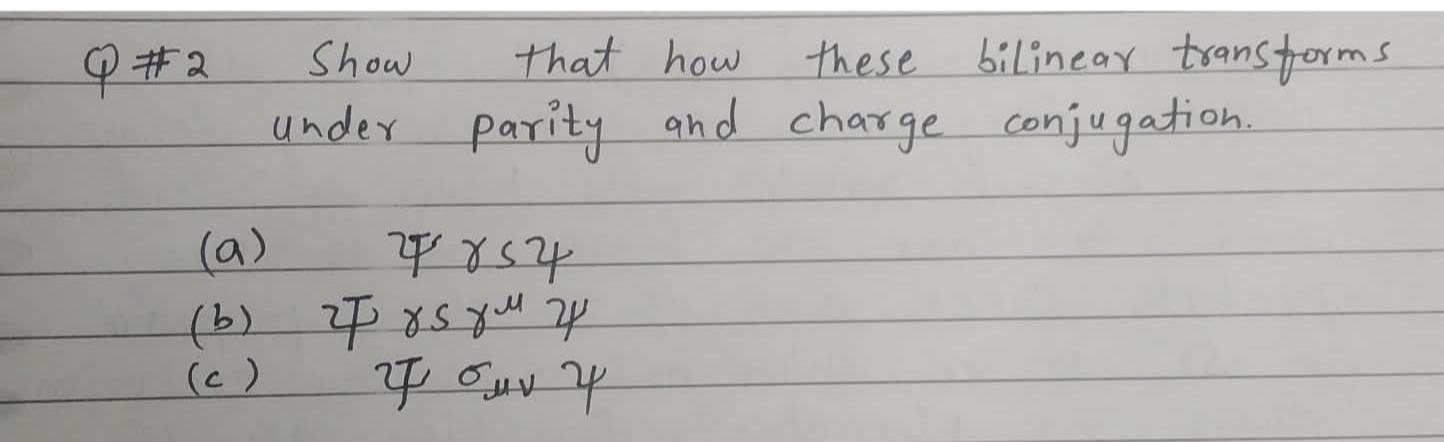 Q #2 Show that how these bilinear transforms
under parity and charge conjugation.
(a) ψ̄ γ5 ψ
(b) ψ̄ γ5 γ^μ ψ
(c) ψ̄ σ_μν ψ